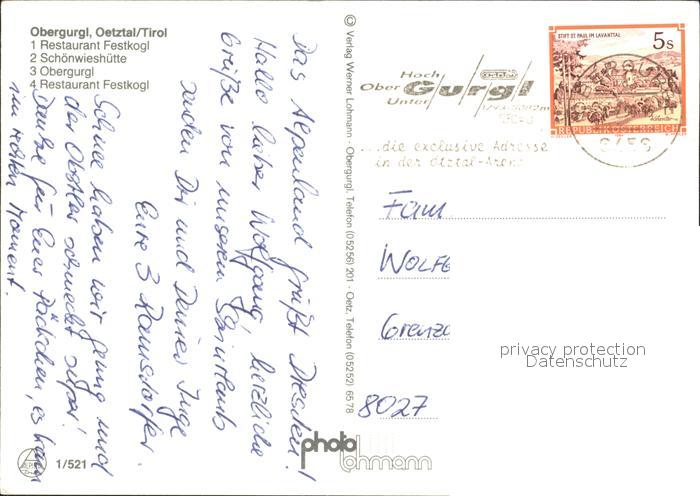 Obergurgl, Oetztal/Tirol
1 Restaurant Festkogl
2 Schönwieshütte
3 Obergurgl
4 Restaurant Festkogl
Das Alpenland grüßt Dresden!
Hallo lieber Wolfgang! herzliche
Grüße von unserem Skiurlaub
senden Dir und Deiner Inge
Eure 3 Ramsdorfer.
Schnee haben wir genug und
der Obstler schmeckt super!
Danke für Euer Päckchen, es kam
im rechten Moment.
1/521
© Verlag Werner Lohmann · Obergurgl, Telefon (05256) 201 · Oetz, Telefon (05252) 6578
Hoch
Ober Gurgl
Unter
...die exclusive Adresse
in der Ötztal-Arena
STIFT ST. PAUL IM LAVANTTAL
5s
REPUBLIK ÖSTERREICH
6456
Fam.
WOLFG
Grenz
8027
privacy protection
Datenschutz
photo
lohmann